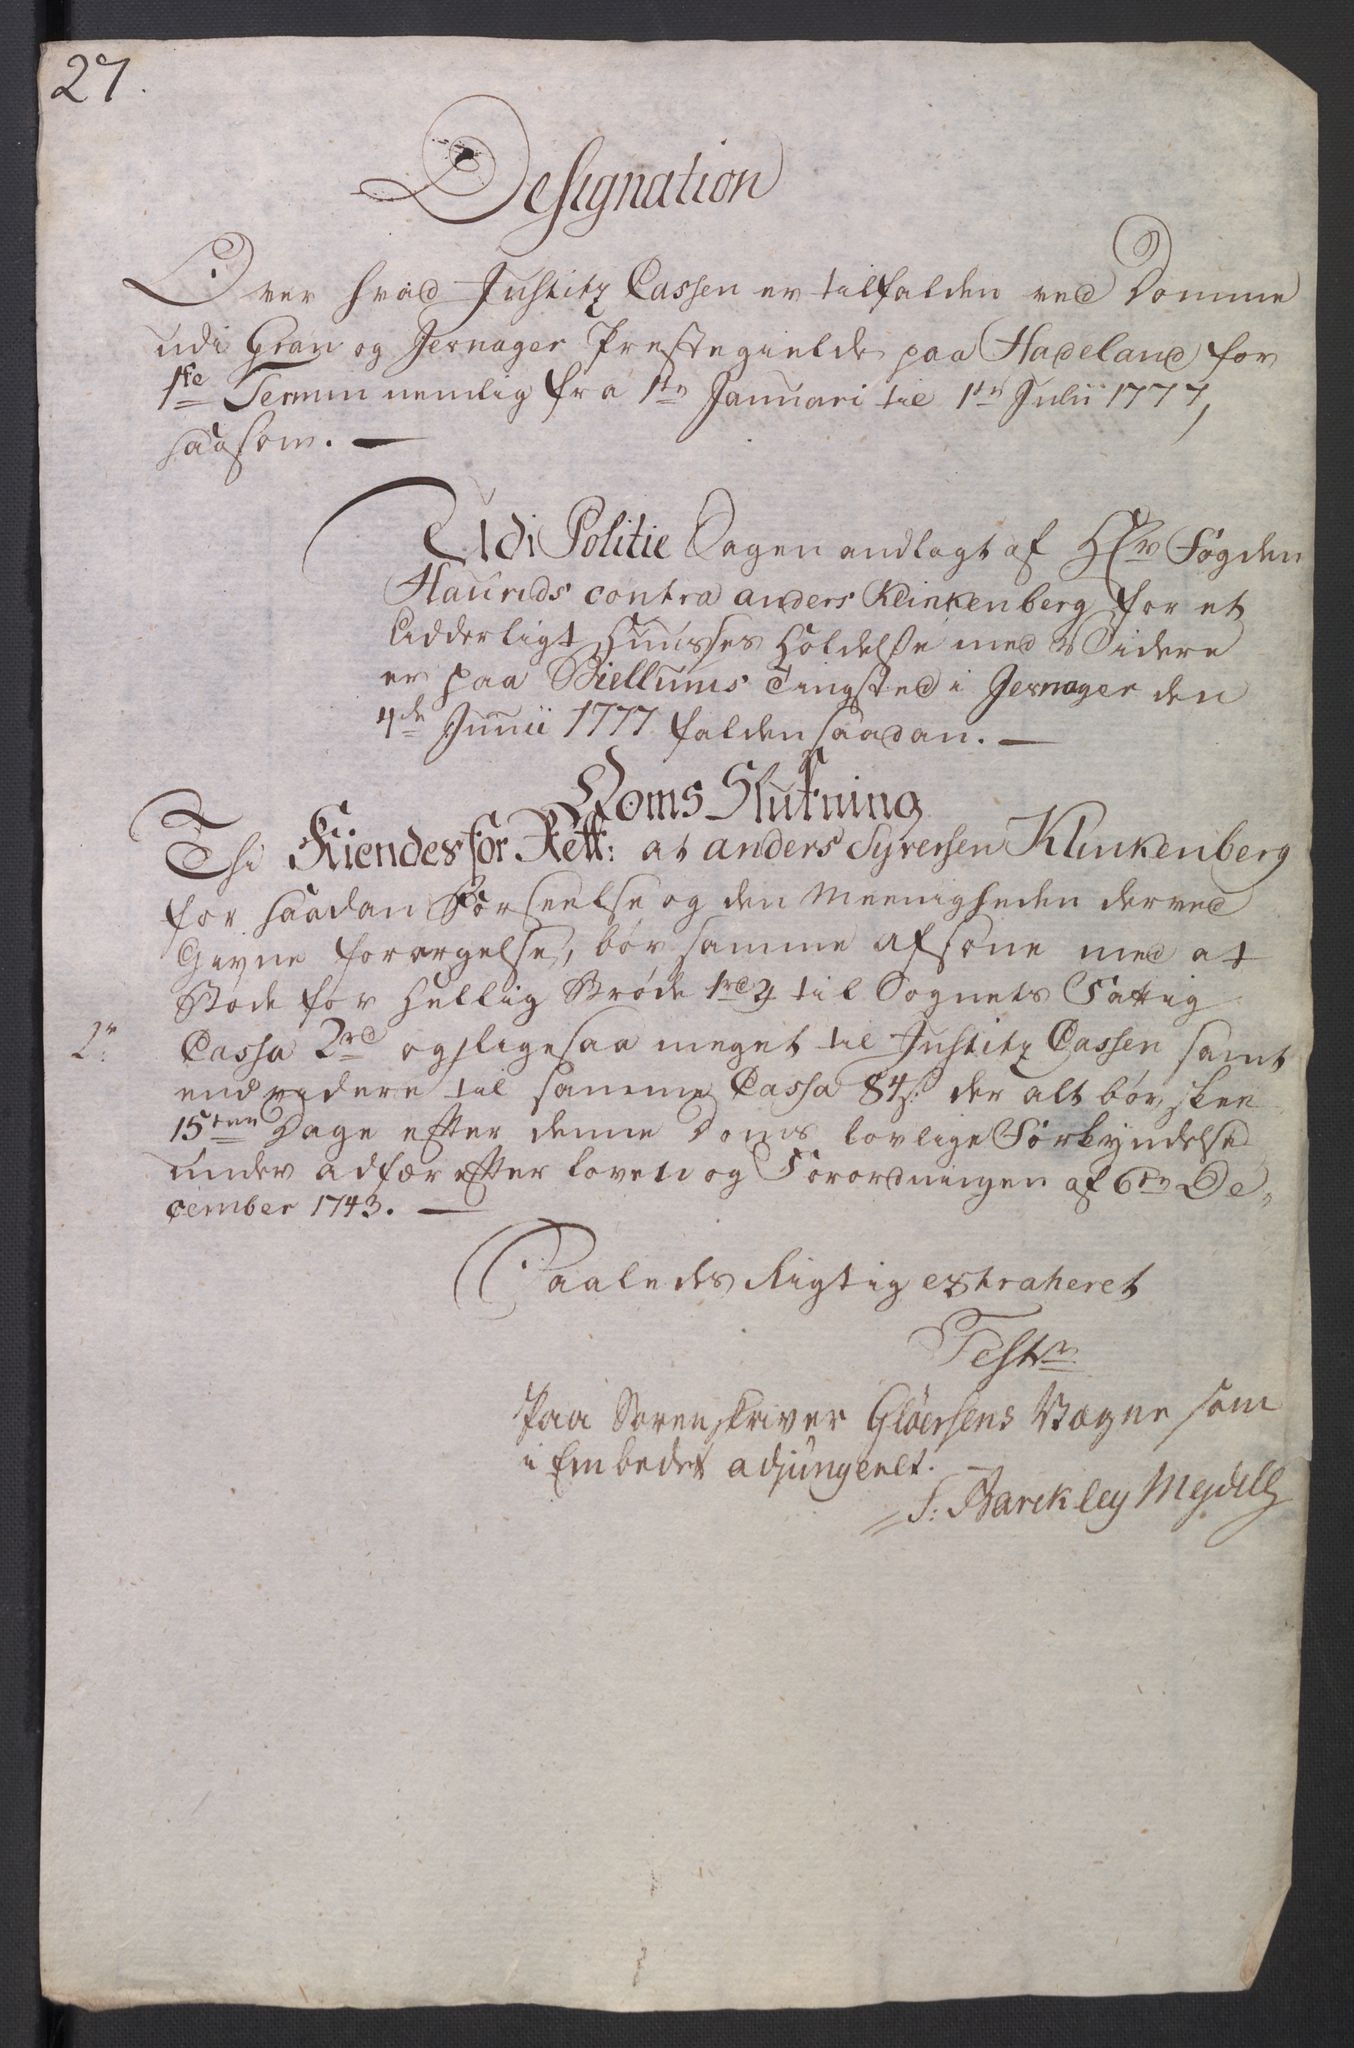 27.
Designation
Over hvad Justitz Cassen er tilfalden ved Domme
udi Gran og Jernager Prestegielde paa Hadeland for
1ste Termin nemlig fra 1ste Januari til 1ste Julii 1777,
saasom. —
Udi Politie Sagen andlagt af Hr Fogden
Hauruds contra anders Klinkenberg for et
Lidderligt Huusses Holdelse med Videre
er paa Biellums Tingsted i Jernager den
4de Junii 1777 falden saadan. —
Doms Slutning
Thi Kiendes for Rett: at anders Syversen Klinkenberg
for saadan Forseelse og den Meenigheden derved
Givne forargelse, bør samme afsone med at
Bøde for Hellig Brøde 1rd til Sognets Fattig
2rd Cassa 2rd og ligesaa meget til Justitz Cassen samt
endvidere til samme Cassa 84s. der alt bør skee
15ten Dage efter denne Doms lovlige Forkyndelse
under adfær efter loven og Forordningen af 6te De,
cember 1743. —
Saaledes Rigtig extraheret
Test
Paa Sorenskriver Gløersens Vegne som
i Embedet adjungeret.
S: Barckley Mejdell